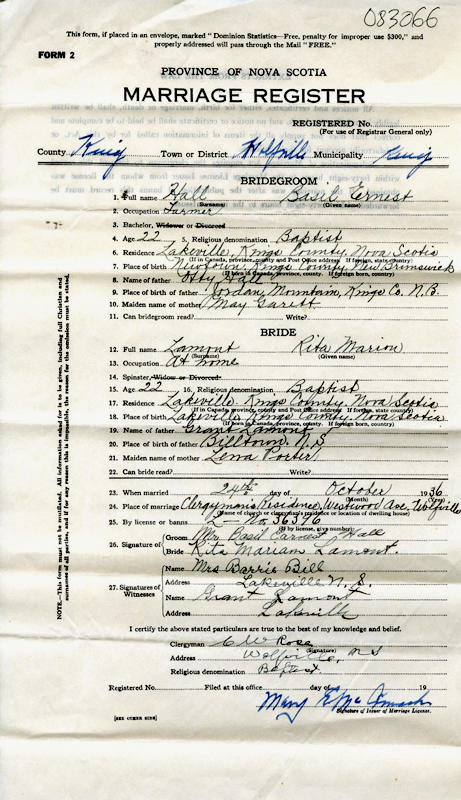 083066
This form, if placed in an envelope, marked "Dominion Statistics—Free, penalty for improper use $300," and
properly addressed will pass through the Mail "FREE."
FORM 2
PROVINCE OF NOVA SCOTIA
MARRIAGE REGISTER
REGISTERED No.
(For use of Registrar General only)
County Kings Town or District Wolfville Municipality Kings
BRIDEGROOM
1. Full name Hall Basil Ernest
(Surname) (Given name)
2. Occupation Farmer
3. Bachelor, Widower or Divorced
4. Age 22 5. Religious denomination Baptist
6. Residence Lakeville, Kings County, Nova Scotia
(If in Canada, province, county and Post Office address If foreign, state country)
7. Place of birth Newtown, Kings County, New Brunswick
(If in Canada, province, county If foreign born, country)
8. Name of father Hall
9. Place of birth of father Jordan Mountain, Kings Co. N.B.
10. Maiden name of mother May Garett
11. Can bridegroom read? Write?
BRIDE
12. Full name Lamont Rita Marion
(Surname) (Given name)
13. Occupation At home
14. Spinster, Widow or Divorced
15. Age 22 16. Religious denomination Baptist
17. Residence Lakeville, Kings County, Nova Scotia
(If in Canada, province, county and Post Office address If foreign, state country)
18. Place of birth Lakeville, Kings County, Nova Scotia
(If in Canada, province, county If foreign born, country)
19. Name of father Grant Lamont
20. Place of birth of father Billtown, N.S
21. Maiden name of mother Lena Porter
22. Can bride read? Write?
23. When married 24th day of October 1936
(Month) (Year)
24. Place of marriage Clergyman's Residence, Westwood Ave, Wolfville
(Name of church or clergyman's residence or location of dwelling house)
25. By license or banns L - No. 36396
(If by license, give number)
26. Signature of Groom Mr. Basil Earnest Hall
Bride Rita Mariam Lamont.
27. Signatures of Witnesses
Name Mrs Barrie Bill
Address Lakeville N.S.
Name Grant Lamont
Address Lakeville
I certify the above stated particulars are true to the best of my knowledge and belief.
Clergyman C W Rose
(Signature)
Address Wolfville, NS
Religious denomination Baptist.
Registered No. Filed at this office day of 19
Mary E
Signature of Issuer of Marriage License.
[SEE OTHER SIDE]